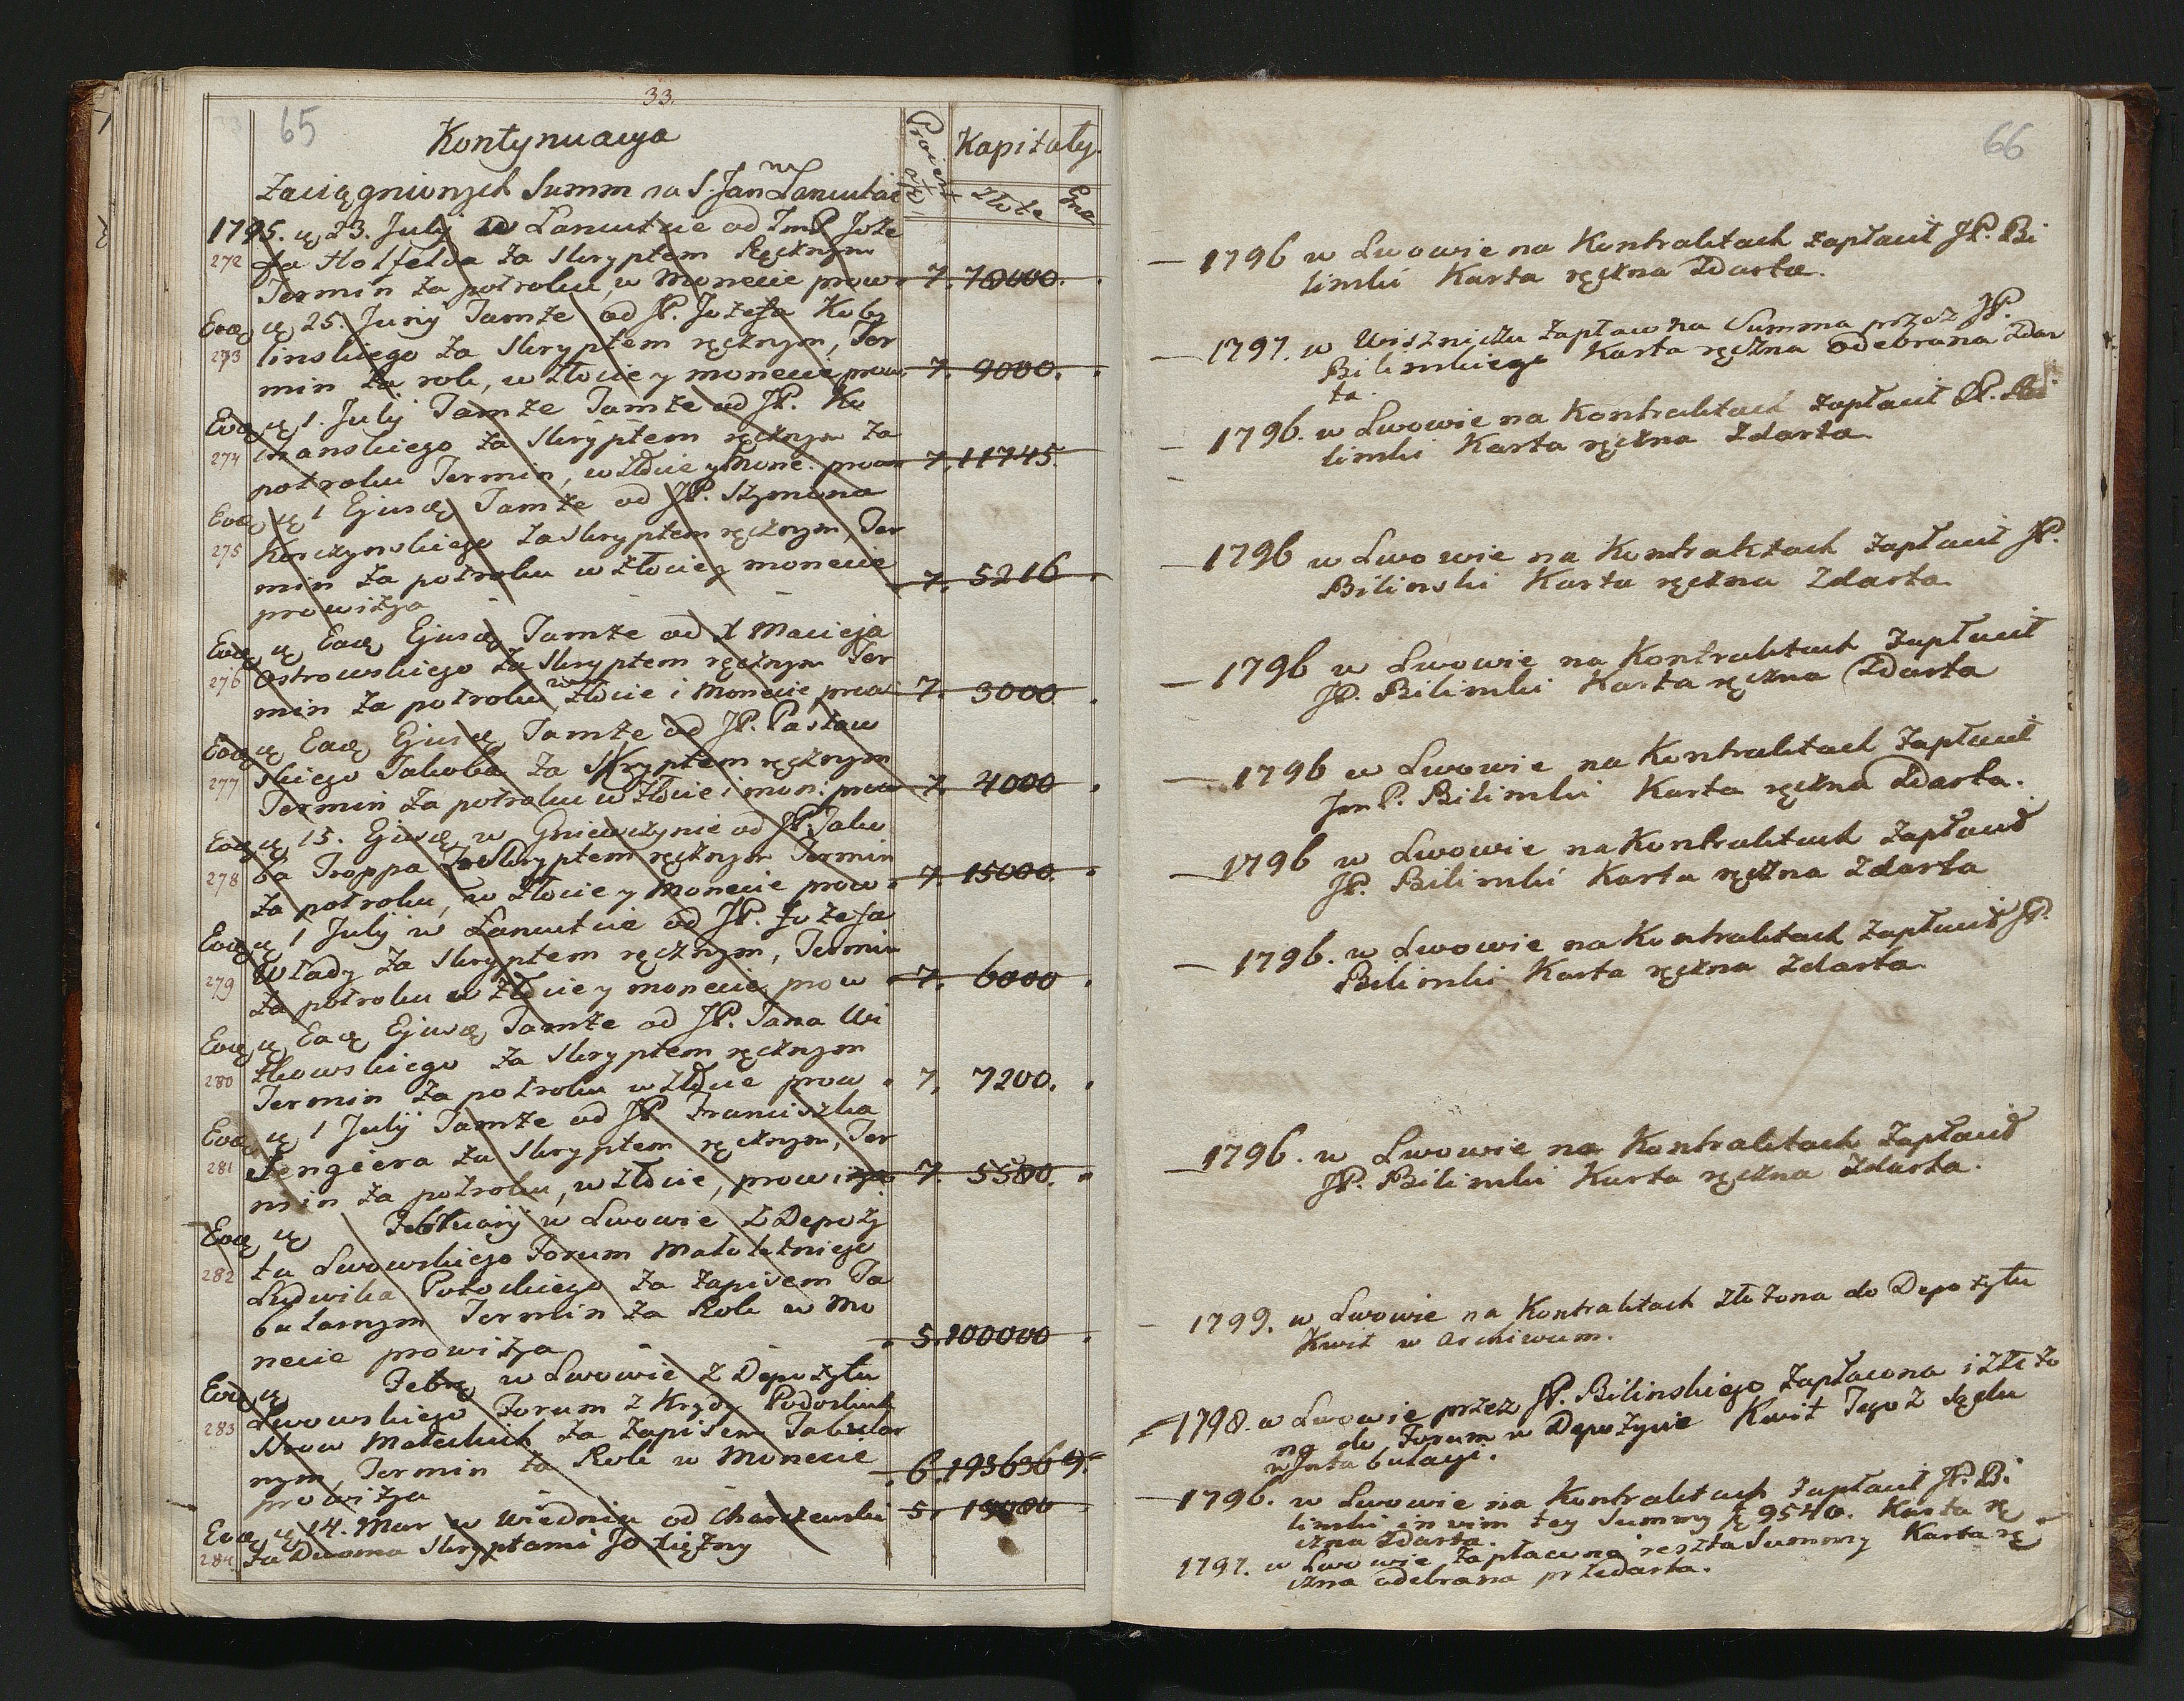 33.
65
Kontynuacya
Zaciągnionych Summ na S. Jan w Lancucie
Procent
od %
Kapitały.
Złote
1795. ą 23. Julÿ w Lancucie od JmP Joze
272 fa Hotfelda za Skryptem Ręcznym
Termin za potroku, w Monecie prow. 7. 70000.
Eoą ą 25. Junÿ Tamze od JP. Jozefa Koby
273 linskiego za Skryptem ręcznym, Ter
min za rok, w Złocie y monecie, prow. 7. 9000.
Eoą ą 1. Julÿ Tamze Tamze od JP. Ko
274 chanskiego za Skryptem ręcznym za
potroku Termin, w Złocie y Mone. prow 7. 11745.
Eoą ą 1 Ejusą Tamze od JP. Szymona
275 Korczynskiego za Skryptem ręcznym, Ter
min za potroku w Złocie y monecie
prowizya - - - 7. 5216
Eoą ą Eaą Ejusą Tamze od X Macieja
276 Ostrowskiego za Skryptem ręcznym Ter
min za potroku w Złocie i Monecie prow 7. 3000
Eoą ą Eaą Ejusą Tamze od JP. Pasław
277 skiego Jakoba za Skryptem ręcznym
Termin za potroku w Złocie i mon: prow 7. 4000
Eoą ą 15. Ejusą w Gniewczynie od JP. Jaku
278 ba Troppa za Skryptem ręcznym Termin
za potroku, w Złocie y Monecie prow. 7. 15000.
Eoą ą 1 Julÿ w Lancucie od JP. Jozefa
279 Włady za Skryptem ręcznym, Termin
za potroku w Złocie y monecie, prow 7. 6000
Eoą ą Eaą Ejusą Tamze od JP. Jana Wi
280 tkowskiego za Skryptem ręcznym
Termin za potroku w Złocie prow. 7. 7200.
Eoą ą 1 Julÿ Tamze od JP Franciszka
281 Jengiera za Skryptem ręcznym, Ter
min za potroku, w Złocie, prowizya 7. 5580.
Eoą ą Februarÿ w Lwowie z Depozÿ
282 tu Lwowskiego Forum małoletniego
Ludwika Potockiego za Zapisem Ta
bularnym Termin za Rok w Mo
necie prowizya - - 5. 100000
Eoą ą Febrą w Lwowie z Depozytu
283 Lwowskiego Forum z Krydy Podoskich
Massow Małeckich za Zapisem Tabular
nym, Termin za Rok w Monecie
prowizya - - 6. 193636 9.
Eoą ą 14. Mar w Wiedniu od Charzewski 5. 19080
284 za Dwoma Skryptami Jo Xiężny
66
- 1796 w Lwowie na Kontraktach zapłacił JP. Bi
linski Karta ręczna Zdarta.
- 1797. w Wisznicku zapłacona Summa przez JP.
Bilinskiego Karta ręczna odebrana Zdar
ta.
- 1796. w Lwowie na Kontraktach zapłacił JP. Bi
linski Karta ręczna Zdarta
- 1796 w Lwowie na Kontraktach zapłacił JP.
Bilinski Karta ręczna Zdarta
- 1796 w Lwowie na Kontraktach zapłacił
JP. Bilinski Karta ręczna Zdarta
- 1796 w Lwowie na Kontraktach zapłacił
JmP. Bilinski Karta ręczna Zdarta.
- 1796 w Lwowie na Kontraktach zapłacił
JP. Bilinski Karta ręczna Zdarta
- 1796. w Lwowie na Kontraktach zapłacił JP.
Bilinski Karta ręczna Zdarta
- 1796. w Lwowie na Kontraktach zapłacił
JP. Bilinski Karta ręczna Zdarta.
- 1799. w Lwowie na Kontraktach złożona do Depozytu
Kwit w Archiwum.
- 1798. w Lwowie przez JP. Bilinskiego zapłacona i złożo
na do Forum w Depozycie Kwit Tegoż Sądu
w Intabulacyi.
- 1796. w Lwowie na Kontraktach zapłacił JP. Bi
linski in vim tey Summy ą 9540. Karta rę
czna Zdarta.
1797. w Lwowie zapłacona reszta Summy Karta rę
czna odebrana przedarta.